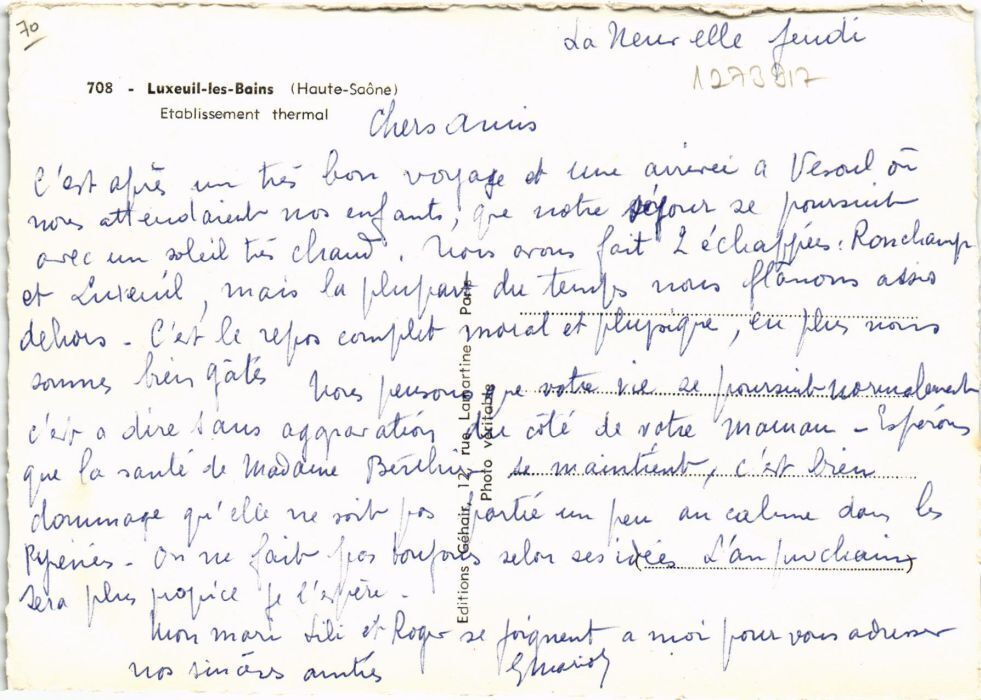 70
La Neuvelle Jeudi
1273917
708 - Luxeuil-les-Bains (Haute-Saône)
Etablissement thermal
Chers Amis
C'est après un très bon voyage et une arrivée a Vesoul où
nous attendaient nos enfants, que notre séjour se poursuit
avec un soleil très chaud. Nous avons fait 2 échappées : Ronchamp
et Luxeuil, mais la plupart du temps nous flânons assis
dehors - C'est le repos complet moral et physique, en plus nous
sommes bien gâtés Nous pensons que votre vie se poursuit normalement
c'est a dire sans aggravation du côté de votre maman - Espérons
que la santé de Madame se maintient, c'est bien
dommage qu'elle ne soit pas partie un peu au calme dans les
Pyrénées - On ne fait pas toujours selon ses idées L'an prochain
sera plus propice je l'espère -
Mon mari Lili et Roger se joignent a moi pour vous adresser
nos sincères amitiés
Editions Géhair, 12, rue Lamartine Paris
Photo véritable